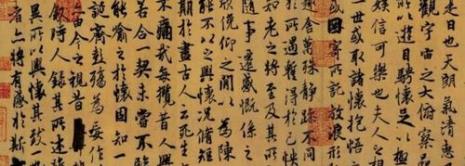 是日也天朗氣清
觀宇宙之大俯察
所以遊目騁懷
娛信可樂也夫人之
一世或取諸懷抱悟言
或因寄所託放浪形
趣舍萬殊靜躁
於所遇暫得於己快
知老之將至及其
隨事遷感慨係之
欣俛仰之閒以為陳
能不以之興懷況脩短
期於盡古人云死生
不痛哉每攬昔人
若合一契未嘗不臨
能喻之於懷固知一
誕齊彭殤為妄作
亦由今之視昔
敘時人錄其所述
異所以興懷其致
者亦將有感於斯